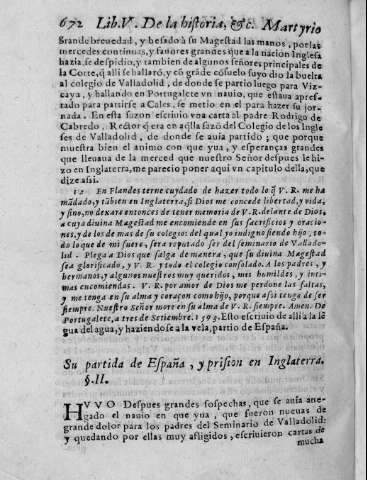 672 Lib.V. De la historia, &c. Martyrio
grande breuedad, y besádo à su Magestad las manos, por las
mercedes continuas, y fauores grandes que a la nacion Inglesa
hazia, se despidio, y tambien de algunos señores principales de
la Corte, q̃ alli se hallarõ, y cõ grãde cõsuelo suyo dio la buelta
al colegio de Valladolid, de donde se partio luego para Viz-
caya, y hallando en Portugalete vn nauio, que estaua apres-
tado para partirse a Cales, se metio en el para hazer su jor-
nada. En esta sazon escriuio vna carta al padre Rodrigo de
Cabredo, Rector q̃ era en aq̃lla sazõ del Colegio de los Ingle
ses de Valladolid, de donde se auia partido; que porque
muestra bien el animo con que yua, y esperanças grandes
que lleuaua de la merced que nuestro Señor despues le hi-
zo en Inglaterra, me parecio poner aqui vn capitulo della, que
dize assi.
12 En Flandes terne cuydado de hazer todo lo q̃ V.R. me ha
mãdado, y tãbien en Inglaterra, si Dios me concede libertad, y vida;
y sino, no dexarè entonces de tener memoria de V.R. delante de Dios,
a cuya diuina Magestad me encomiende en sus sacrificios y oracio-
nes, y de los demas de su colegio: del qual yo indigno siendo hijo, to-
do lo que de mi fuere, serà reputado ser del seminario de Vallado-
lid. Plega a Dios que salga de manera, que su diuina Magestad
sea glorificado, y V.R. y todo el colegio consolado. A los padres, y
hermanos, y algunos nuestros muy queridos, mis humildes, y inti-
mas encomiendas. V.R. por amor de Dios me perdone las faltas,
y me tenga en su alma y coraçon como hijo, porque assi tengo de ser
siempre. Nuestro Señor more en su alma de V.R. siempre. Amen. De
Portugalete, a tres de Setiembre. 1593. Esto escriuio de alli a la lẽ
gua del agua, y haziendose a la vela, partio de España.
Su partida de España, y prision en Inglaterra.
§. II.
HVVO Despues grandes sospechas, que se auia ane-
gado el nauio en que yua, que fueron nueuas de
grande dolor para los padres del Seminario de Valladolid:
y quedando por ellas muy afligidos, escriuieron cartas de
mucha